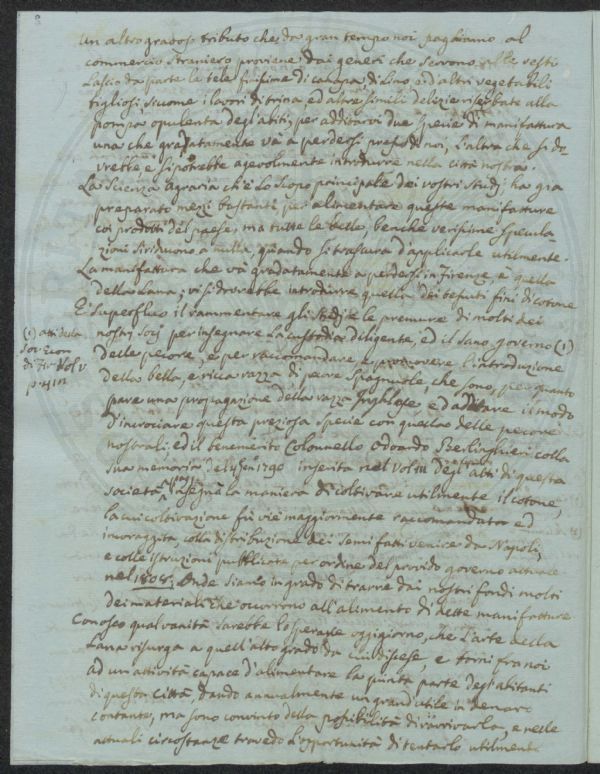 Un altro gravoso tributo che da gran tempo noi paghiamo al
commercio straniero proviene dai generi che servono alle vesti
Lascio da parte le tele finissime di canapa, di lino ed altri vegetabili
tigliosi siccome i lavori di trina, ed altre simili delizie riserbate alla
pompa opulenta degl'abiti, per additarvi due specie di manifattura
una che gradatamente và a perdersi presso di noi, l'altra che si do-
vrebbe e si potrebbe agevolmente introdurre nella città nostra.
La Scienza agraria ch'è lo scopo principale dei vostri studj ha già
preparato mezzi bastanti per alimentare queste manifatture
coi prodotti del paese, ma tutte le belle, benche verissime specula-
zioni si riducono a nulla quando si trascura d'applicarle utilmente.
La manifattura che và gradatamente a perdersi in Firenze, è quella
della Lana, vi si dovrebbe introdurre quella dei tessuti fini di cotone
E' superfluo il rammentare gli studj, e le premure di molti dei
nostri Socj per insegnare la custodia diligente, ed il sano governo (1)
delle pecore, e per raccomandare e promovere l'introduzione
della bella, e ricca razza di pecore Spagnuole, che sono, per quanto
pare una propagazione della razza Inglese, ed additare il modo
d'incrociare questa preziosa specie con quella delle pecore
nostrali: ed il benemerito Colonnello Odoardo Berlinghieri colla
sua memoria del 1790 inserita nel Vol III degl'atti di questa
società insegnò la maniera di coltivare utilmente il cotone,
la cui coltivazione fù vie maggiormente raccomandata ed
incoraggita, colla distribuzione dei semi fatti venire da Napoli,
e colle istruzioni pubblicate per ordine del provido governo
nel 1808. Onde siamo in grado di trarre dai nostri fondi molti
dei materiali che occorrono all'alimento di dette manifatture
Conosco qual vanità sarebbe lo sperare oggigiorno, che l'arte della
Lana risurga a quell'alto grado da cui discese, e torni fra noi
ad un attività capace d'alimentare la quinta parte degl'abitanti
di questa città, dando annualmente un grand'utile in denaro
contante, ma sono convinto della possibilità di ravvivarla, e nelle
attuali circostanze travedo l'opportunità di tentarlo utilmente
(1) atti della
Vol V